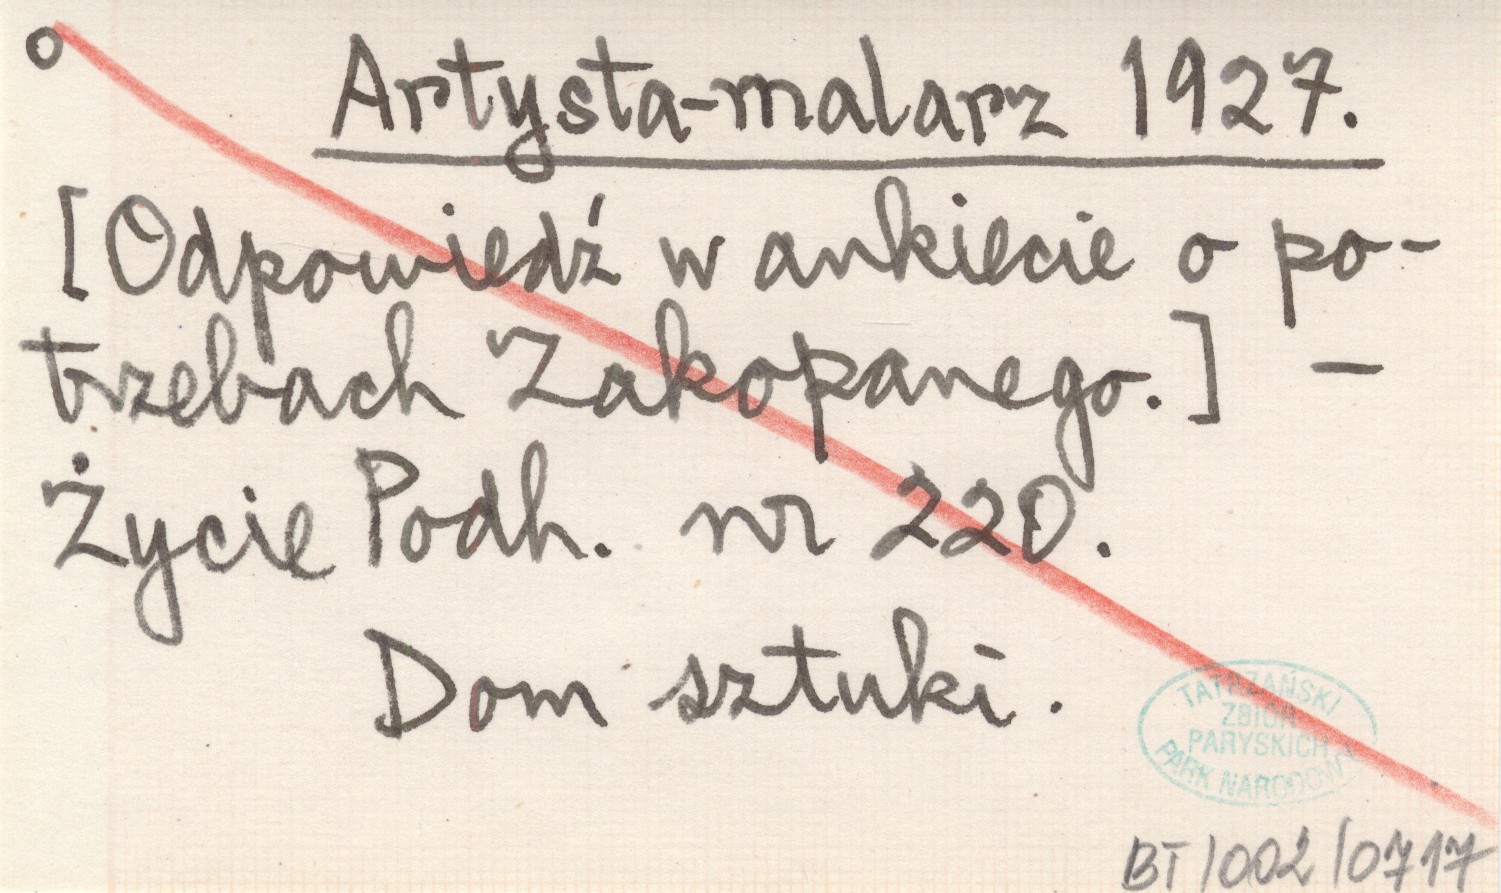 o
Artysta-malarz 1927.
[Odpowiedź w ankiecie o po-
trzebach Zakopanego.] –
Życie Podh. nr 220.
Dom sztuki.
TATRZAŃSKI
ZBIÓR
PARYSKICH
PARK NARODOWY
BT/002/0717